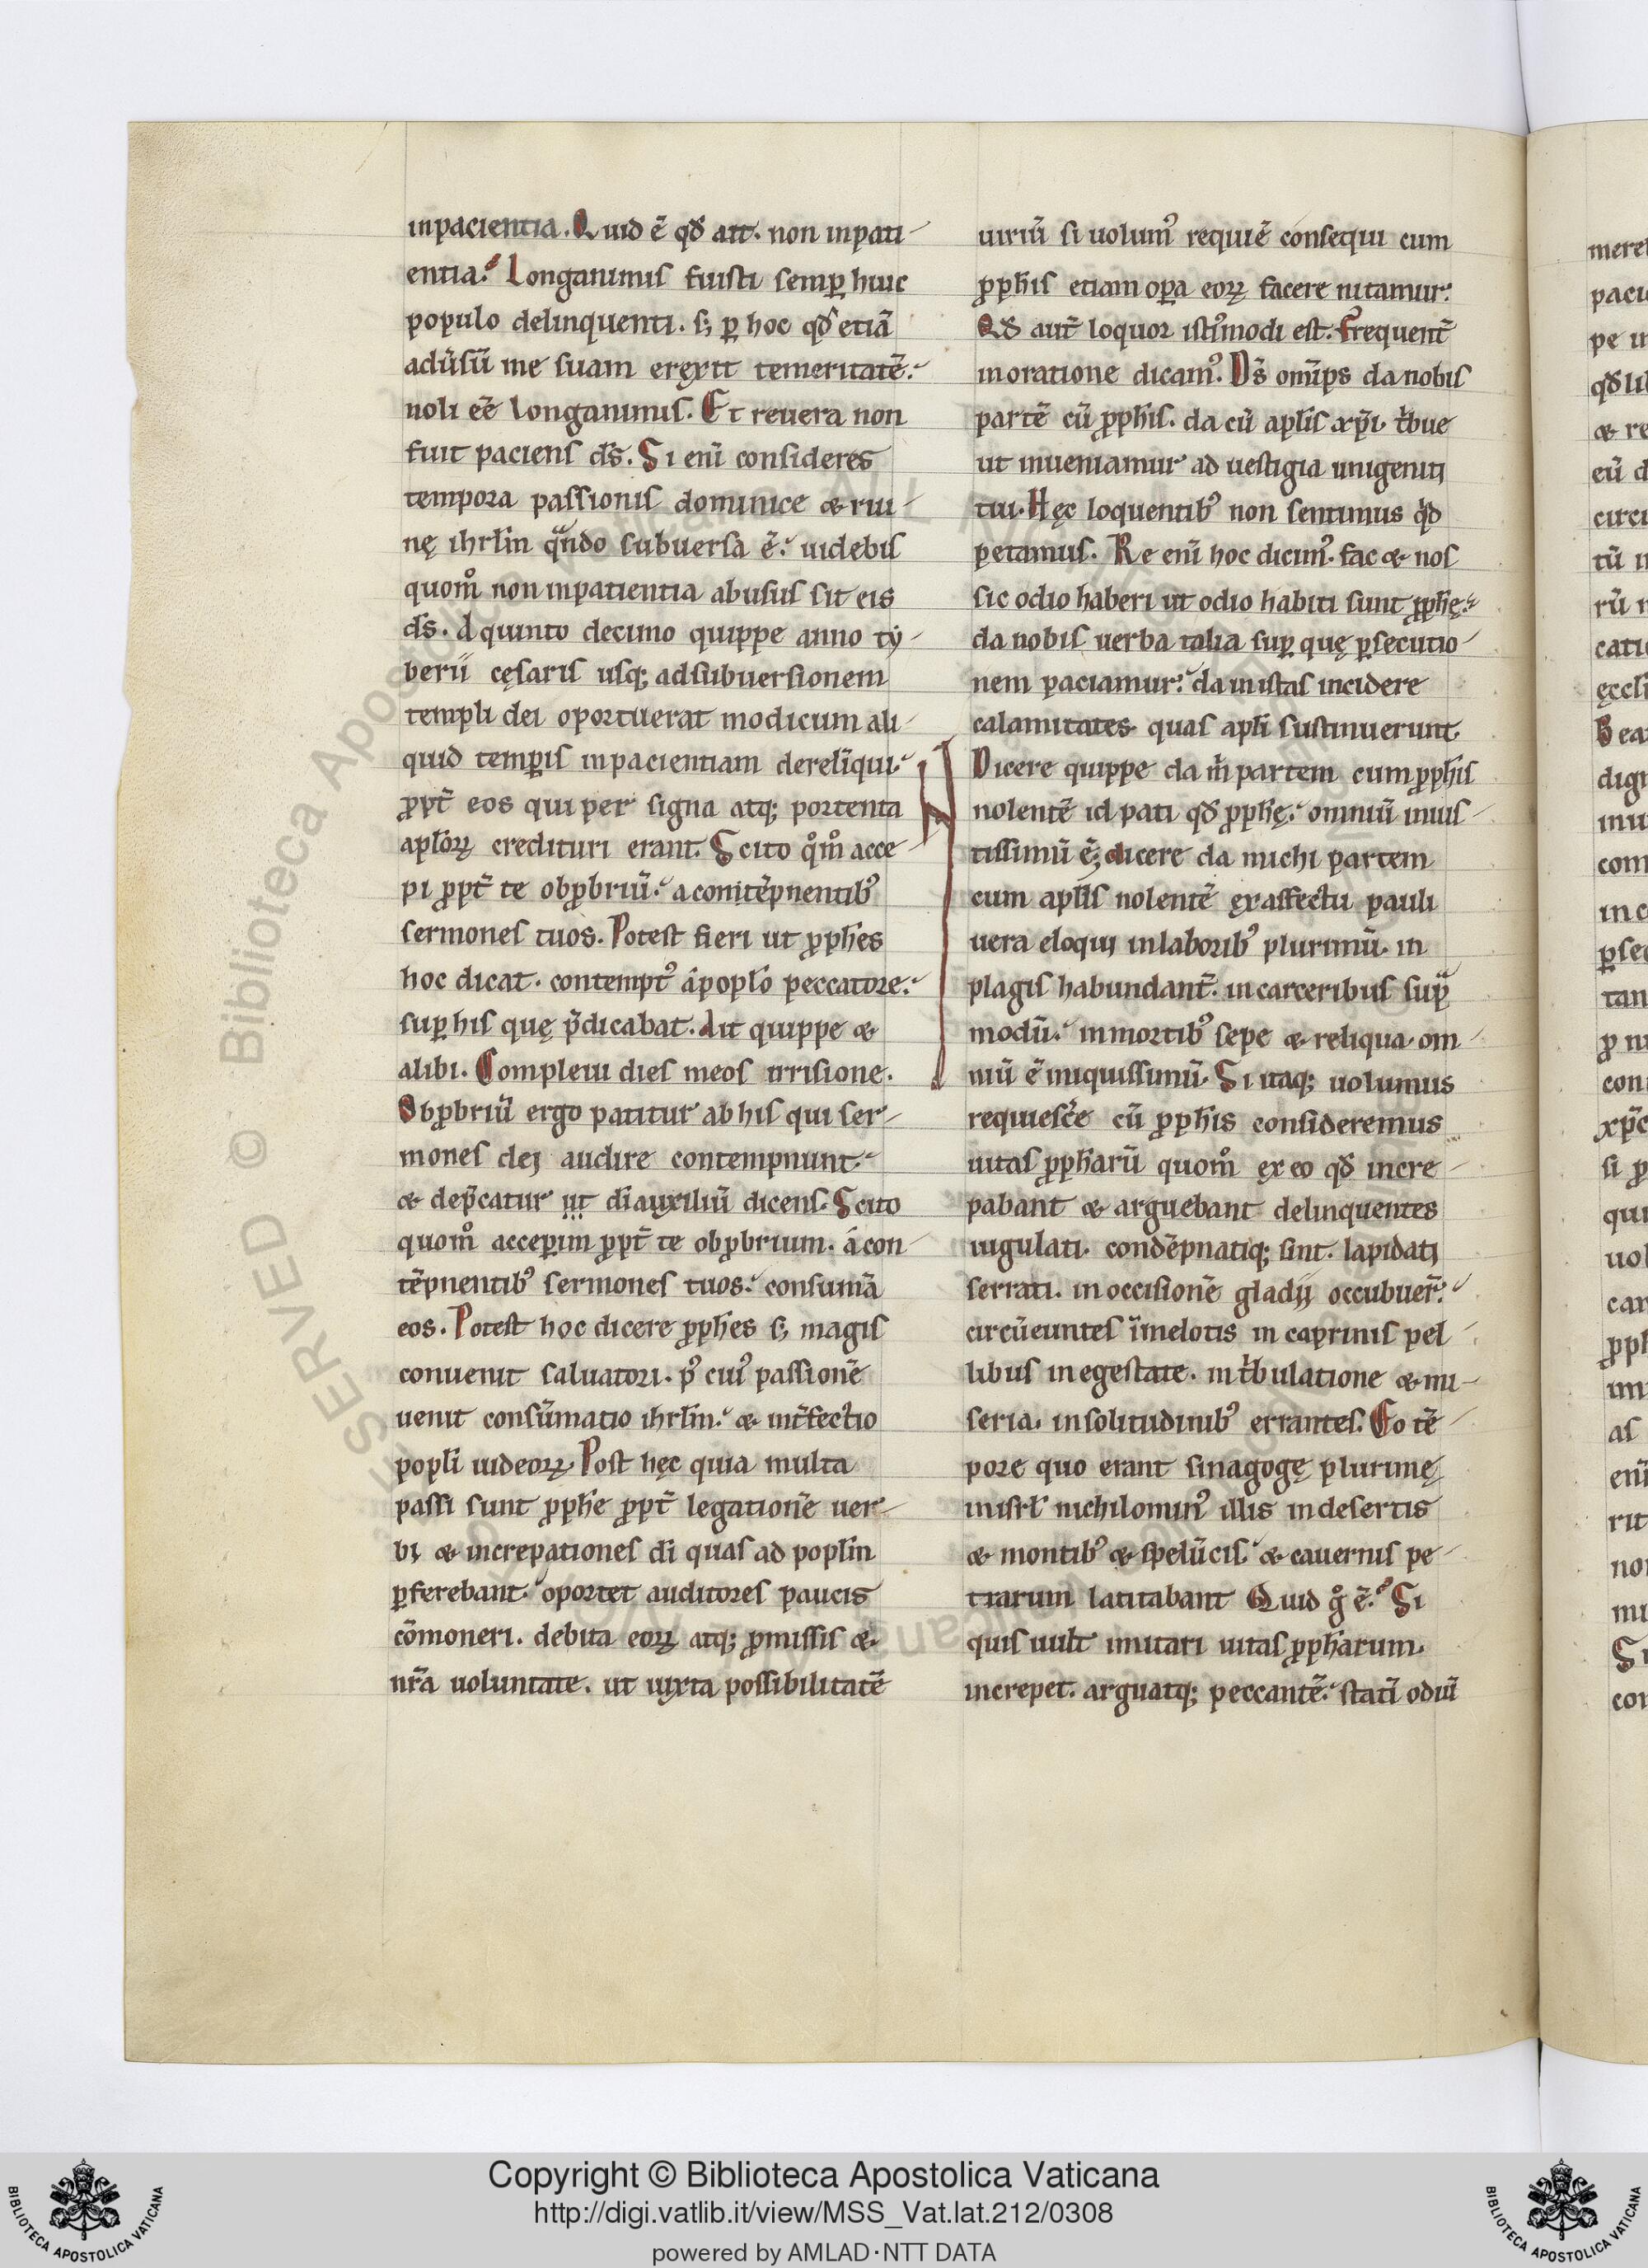 inpacientia. Quid ẽ qđ ait. non inpati-
entia? Longanimis fuisti semp̱ huic
populo delinquenti. s; p̱ hoc qđ etiã
adũsũ me suam erexit temeritatẽ.
noli eẽ longanimis. Et reuera non
fuit paciens ds̃. Si enĩ consideres
tempora passionis dominice & rui-
nę ihrlm̃ qãndo subuersa ẽ. uidebis
quom̊ non inpatientia abusus sit eis
ds̃. A quinto decimo quippe anno ty-
berii cęsaris usq; ad subuersionem
templi dei oportuerat modicum ali-
quid temp̱is in pacientiam derelĩqui.
ꝓpt̃ eos qui per signa atq; portenta
apl̃oꝝ credituri erant. Scito q̊m̊ acce-
pi ꝓpt̃ te obꝓbriũ. a contẽpnentib᾿
sermones tuos. Potest fieri ut ꝓph̃es
hoc dicat. contempt᾿ á popl̃o peccatore.
sup̱ his quę p̃dicabat. Ait quippe &
alibi. Compleui dies meos irrisione.
Obꝓbriũ ergo patitur ab his qui ser-
mones dei audire contempnunt.
& dep̃catur ut dĩ auxiliũ dicens. Scito
quom̊ acceperim ꝓpt̃ te obꝓbrium. á con-
tẽpnentib᾿ sermones tuos. consumã
eos. Potest hoc dicere ꝓph̃es s; magis
conuenit saluatori. p᾿ cui᾿ passionẽ
uenit consũmatio ihrlm̃. & int̃fectio
popl̃i iudeoꝝ. Post hęc quia multa
passi sunt ꝓph̃e ꝓpt̃ legationẽ uer-
bi & increpationes dĩ quas ad popl̃m
p̱ferebant. oportet auditores paucis
cõmoneri. debita eoꝝ atq; ꝓmissis &
nr̃a uoluntate. ut iuxta possibilitatẽ
uiriũ si uolum᾿ requiẽ consequi cum
ꝓph̃is etiam op̱a eoꝝ facere nitamur.
Qđ aut̃ loquor isti᾿modi est. Frequent̃
in oratione dicam᾿. Ds̃ om̃ips da nobis
partẽ cũ ꝓph̃is. da cũ apl̃is xp̃i. tⁱbue
ut inueniamur ad uestigia unigeniti
tui. Hęc loquentib᾿ non sentimus qⁱd
petamus. Re enĩ hoc dicim᾿. fac & nos
sic odio haberi ut odio habiti sunt ꝓph̃ę.
da nobis uerba talia sup̱ quę p̱secutio-
nem paciamur. da in istas incidere
calamitates quas apl̃i sustinuerunt.
Dicere quippe da mⁱ partem cum ꝓph̃is
nolentẽ id pati qđ ꝓph̃ę. omniũ inius-
tissimũ ẽ; dicere da michi partem
cum apl̃is nolentẽ ex affectu pauli
uera eloqui in laborib᾿ plurimũ. in
plagis habundant̃. in carceribus sup̃
modũ. in mortib᾿ sepe & reliqua. om-
niũ ẽ iniquissimũ. Si itaq; uolumus
requiesc̃e cũ ꝓph̃is consideremus
uitas ꝓph̃arũ quom̊ ex eo qđ incre-
pabant & arguebant delinquentes
iugulati. condẽpnatiq; sint. lapidati
serrati. in occisionẽ gladii occubuer̃.
circũeuntes ĩ melotis in caprinis pel-
libus in egestate. in tⁱbulatione & mi-
seria. in solitudinib᾿ errantes. Eo tẽ-
pore quo erant sinagogę plurimę
in isrl̃ nichilomin᾿ illis in desertis
& montib᾿ & spelũcis. & cauernis pe-
trarum latitabant Quid g̊ ẽ? Si
quis uult imitari uitas ꝓph̃arum.
increpet. arguatq; peccantẽ. statĩ odiũ
merel
paci
Copyright © Biblioteca Apostolica Vaticana
http://digi.vatlib.it/view/MSS_Vat.lat.212/0308
powered by AMLAD·NTT DATA
BIBLIOTECA APOSTOLICA VATICANA
BIBLIOTECA APOSTOLICA VATICANA